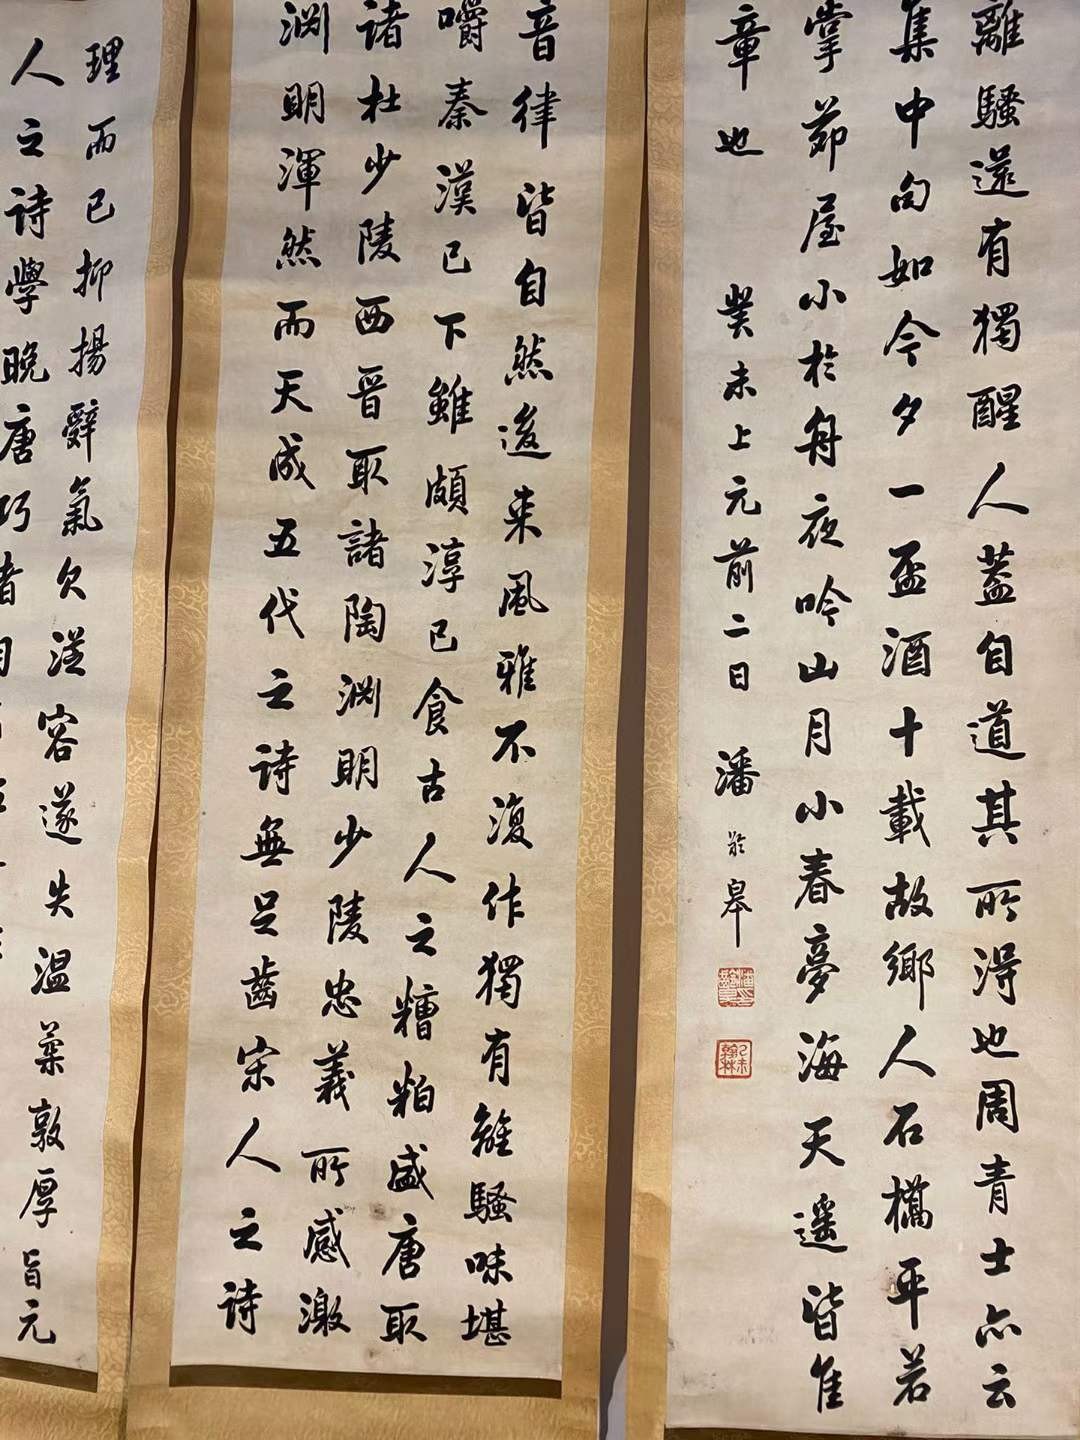 離騷遠有獨醒人蓋自道其所得也周青士亦云
集中句如今夕一盃酒十載故鄉人石橋平若
掌茆屋小於舟夜吟山月小春夢海天遥皆佳
章也
癸未上元前二日 潘齡皋
潘齡皋
乙未翰林
音律皆自然後来風雅不復作獨有離騷味堪
嚼秦漢已下雖頗淳已食古人之糟粕盛唐取
諸杜少陵西晋取諸陶渊明少陵忠義所感激
渊明渾然而天成五代之詩無足齒宋人之詩
理而已抑揚辭氣欠從容遂失温柔敦厚旨元
人之詩學晚唐巧者